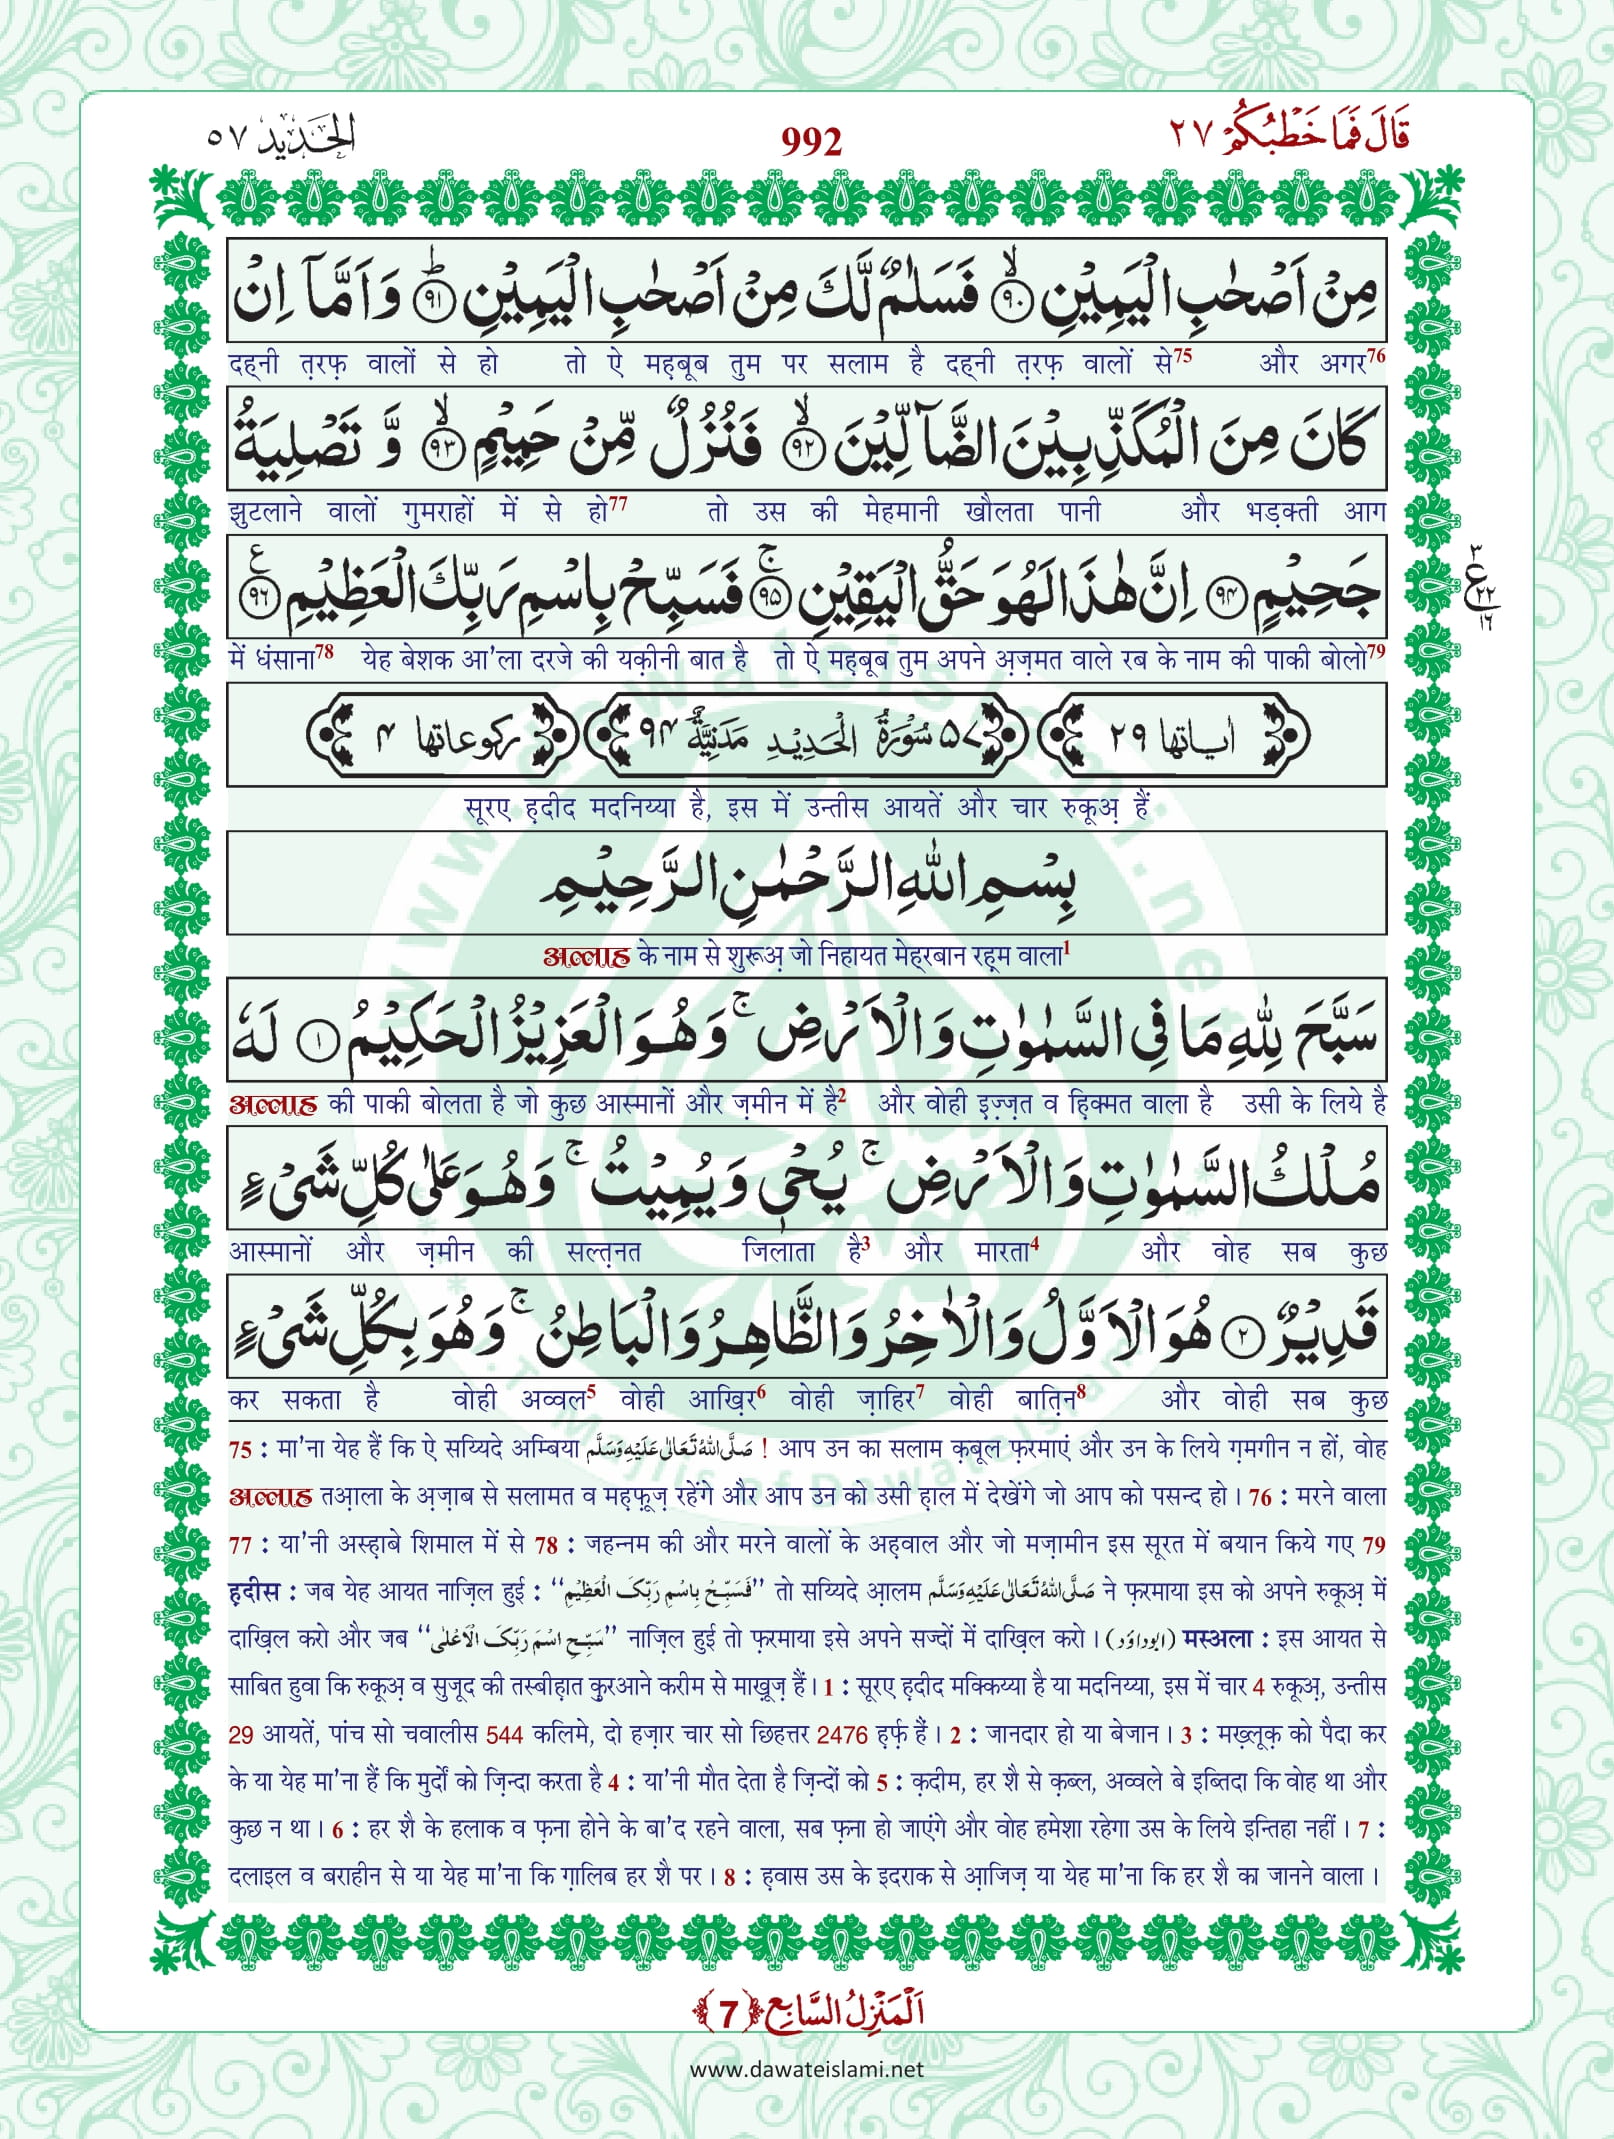 قَالَ فَمَا خَطْبُكُمْ ٢٧
992
الحَدِيد ٥٧
مِنْ اَصْحٰبِ الْيَمِيْنِ ۙ﴿٩٠﴾ فَسَلٰمٌ لَّكَ مِنْ اَصْحٰبِ الْيَمِيْنِ ؕ﴿٩١﴾ وَ اَمَّاۤ اِنْ
दह्नी त़रफ़ वालों से हो तो ऐ मह़बूब तुम पर सलाम है दह्नी त़रफ़ वालों से75 और अगर76
كَانَ مِنَ الْمُكَذِّبِيْنَ الضَّآلِّيْنَ ۙ﴿٩٢﴾ فَنُزُلٌ مِّنْ حَمِيْمٍ ۙ﴿٩٣﴾ وَّ تَصْلِيَةُ
झुटलाने वालों गुमराहों में से हो77 तो उस की मेहमानी खौलता पानी और भड़क्ती आग
جَحِيْمٍ ﴿٩٤﴾ اِنَّ هٰذَا لَهُوَ حَقُّ الْيَقِيْنِ ۚ﴿٩٥﴾ فَسَبِّحْ بِاسْمِ رَبِّكَ الْعَظِيْمِ ﴿٩٦﴾ ع
٣
ع
٢٢
١٦
में धंसाना78 येह बेशक आ'ला दरजे की यक़ीनी बात है तो ऐ मह़बूब तुम अपने अ़ज़मत वाले रब के नाम की पाकी बोलो79
اٰیاتها ٢٩ ٥٧ سُوْرَةُ الْحَدِيْدِ مَدَنِيَّةٌ ٩٤ ركوعاتها ٤
सूरए ह़दीद मदनिय्या है, इस में उन्तीस आयतें और चार रुकूअ़ हैं
بِسْمِ اللهِ الرَّحْمٰنِ الرَّحِيْمِ
अल्लाह के नाम से शुरूअ़ जो निहायत मेह्रबान रह़्म वाला1
سَبَّحَ لِلّٰهِ مَا فِي السَّمٰوٰتِ وَ الْاَرْضِ ۚ وَ هُوَ الْعَزِيْزُ الْحَكِيْمُ ﴿١﴾ لَهٗ
अल्लाह की पाकी बोलता है जो कुछ आस्मानों और ज़मीन में है2 और वोही इ़ज़्ज़त व ह़िक्मत वाला है उसी के लिये है
مُلْكُ السَّمٰوٰتِ وَ الْاَرْضِ ۚ يُحْيٖ وَ يُمِيْتُ ۚ وَ هُوَ عَلٰى كُلِّ شَيْءٍ
आस्मानों और ज़मीन की सल्त़नत जिलाता है3 और मारता4 और वोह सब कुछ
قَدِيْرٌ ﴿٢﴾ هُوَ الْاَوَّلُ وَ الْاٰخِرُ وَ الظَّاهِرُ وَ الْبَاطِنُ ۚ وَ هُوَ بِكُلِّ شَيْءٍ
कर सकता है वोही अव्वल5 वोही आख़िर6 वोही ज़ाहिर7 वोही बात़िन8 और वोही सब कुछ
75 : मा'ना येह हैं कि ऐ सय्यिदे अम्बिया صَلَّى اللهُ تَعَالٰى عَلَيْهِ وَسَلَّم ! आप उन का सलाम क़बूल फ़रमाएं और उन के लिये ग़मगीन न हों, वोह
अल्लाह तआ़ला के अ़ज़ाब से सलामत व मह़फ़ूज़ रहेंगे और आप उन को उसी ह़ाल में देखेंगे जो आप को पसन्द हो। 76 : मरने वाला
77 : या'नी अस्ह़ाबे शिमाल में से 78 : जहन्नम की और मरने वालों के अह़वाल और जो मज़ामीन इस सूरत में बयान किये गए 79
ह़दीस : जब येह आयत नाज़िल हुई : ‘‘فَسَبِّحْ بِاسْمِ رَبِّكَ الْعَظِيْمِ’’ तो सय्यिदे आ़लम صَلَّى اللهُ تَعَالٰى عَلَيْهِ وَسَلَّم ने फ़रमाया इस को अपने रुकूअ़ में
दाख़िल करो और जब ‘‘سَبِّحِ اسْمَ رَبِّكَ الْاَعْلٰى’’ नाज़िल हुई तो फ़रमाया इसे अपने सज्दों में दाख़िल करो। (ابوداؤد) मस्अला : इस आयत से
साबित हुवा कि रुकूअ़ व सुजूद की तस्बीह़ात क़ुरआने करीम से माख़ूज़ हैं। 1 : सूरए ह़दीद मक्किय्या है या मदनिय्या, इस में चार 4 रुकूअ़, उन्तीस
29 आयतें, पांच सो चवालीस 544 कलिमे, दो हज़ार चार सो छिहत्तर 2476 ह़र्फ़ हैं। 2 : जानदार हो या बेजान। 3 : मख़्लूक़ को पैदा कर
के या येह मा'ना हैं कि मुर्दों को ज़िन्दा करता है 4 : या'नी मौत देता है ज़िन्दों को 5 : क़दीम, हर शै से क़ब्ल, अव्वले बे इब्तिदा कि वोह था और
कुछ न था। 6 : हर शै के हलाक व फ़ना होने के बा'द रहने वाला, सब फ़ना हो जाएंगे और वोह हमेशा रहेगा उस के लिये इन्तिहा नहीं। 7 :
दलाइल व बराहीन से या येह मा'ना कि ग़ालिब हर शै पर। 8 : ह़वास उस के इदराक से आ़जिज़ या येह मा'ना कि हर शै का जानने वाला।
اَلْمَنْزِلُ السَّابِع ﴿7﴾
www.dawateislami.net